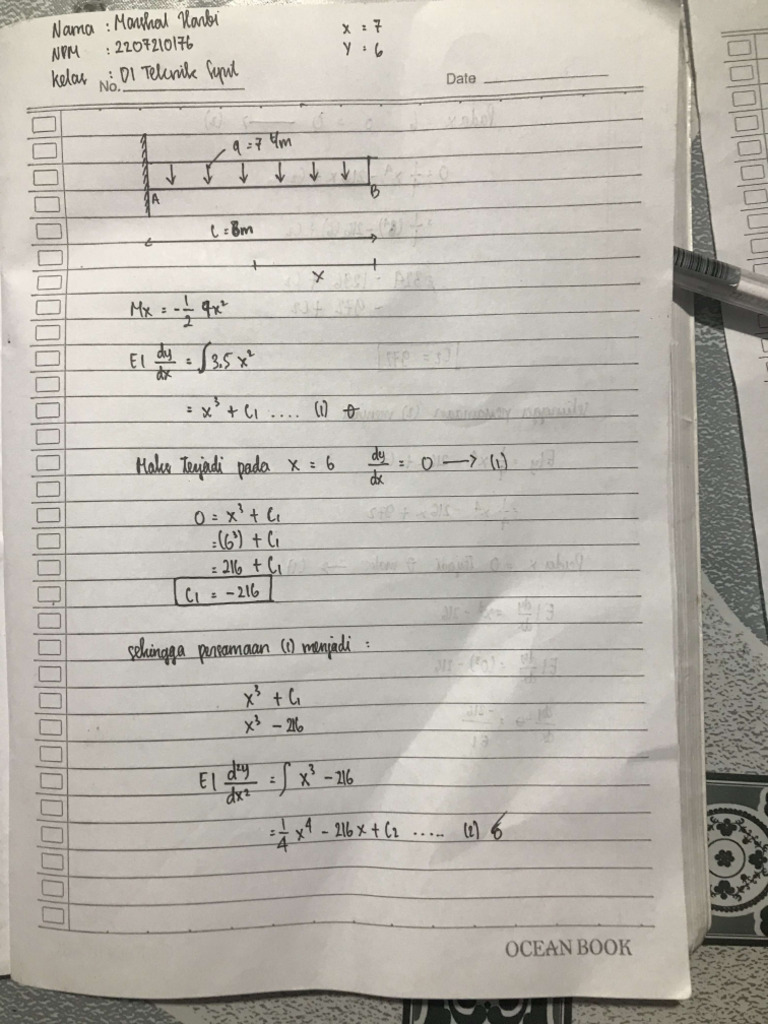 Nama : Marshal Harbi
NPM : 2207210176
Kelas : D1 Teknik Sipil
x = 7
y = 6
No.
Date
q = 7 t/m
A
B
L = 8m
x
Mx = -1/2 qx²
EI dy/dx = ∫ 3.5 x²
= x³ + C₁ .... (1) θ
Maka Terjadi pada x = 6 dy/dx = 0 → (1)
0 = x³ + C₁
= (6³) + C₁
= 216 + C₁
C₁ = -216
sehingga persamaan (1) menjadi :
x³ + C₁
x³ - 216
EI d²y/dx² = ∫ x³ - 216
= 1/4 x⁴ - 216x + C₂ ..... (2)
OCEAN BOOK